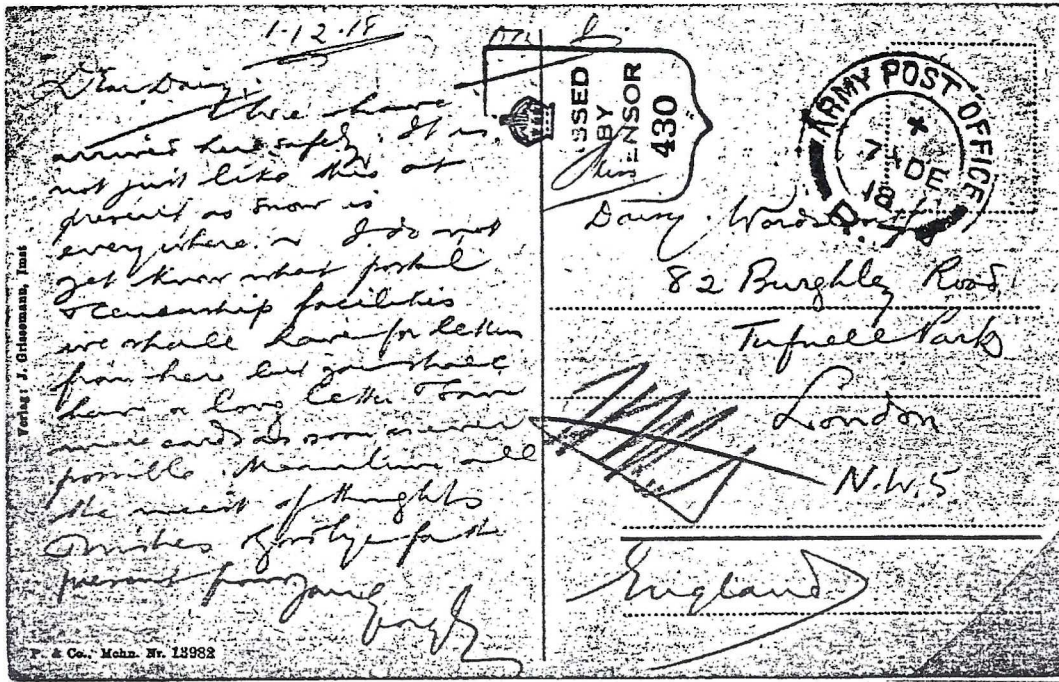 1.12.18
Dear Daisy,
We have
arrived here safely. It is
not just like this at
present as snow is
everywhere. I do not
yet know what postal
& censorship facilities
we shall have for letters
from here but you shall
have a long letter & some
more cards as soon as ever
possible. Meantime all
the nicest of thoughts
& wishes & goodbye for the
present from
Verlag: J. Grissemann, Imst
P. & Co., Mchn. Nr. 13982
PASSED
BY
CENSOR
430
ARMY POST OFFICE
7 DE
18
Miss
Daisy Wordsworth
82 Burghley Road,
Tufnell Park
London
N.W.5.
England